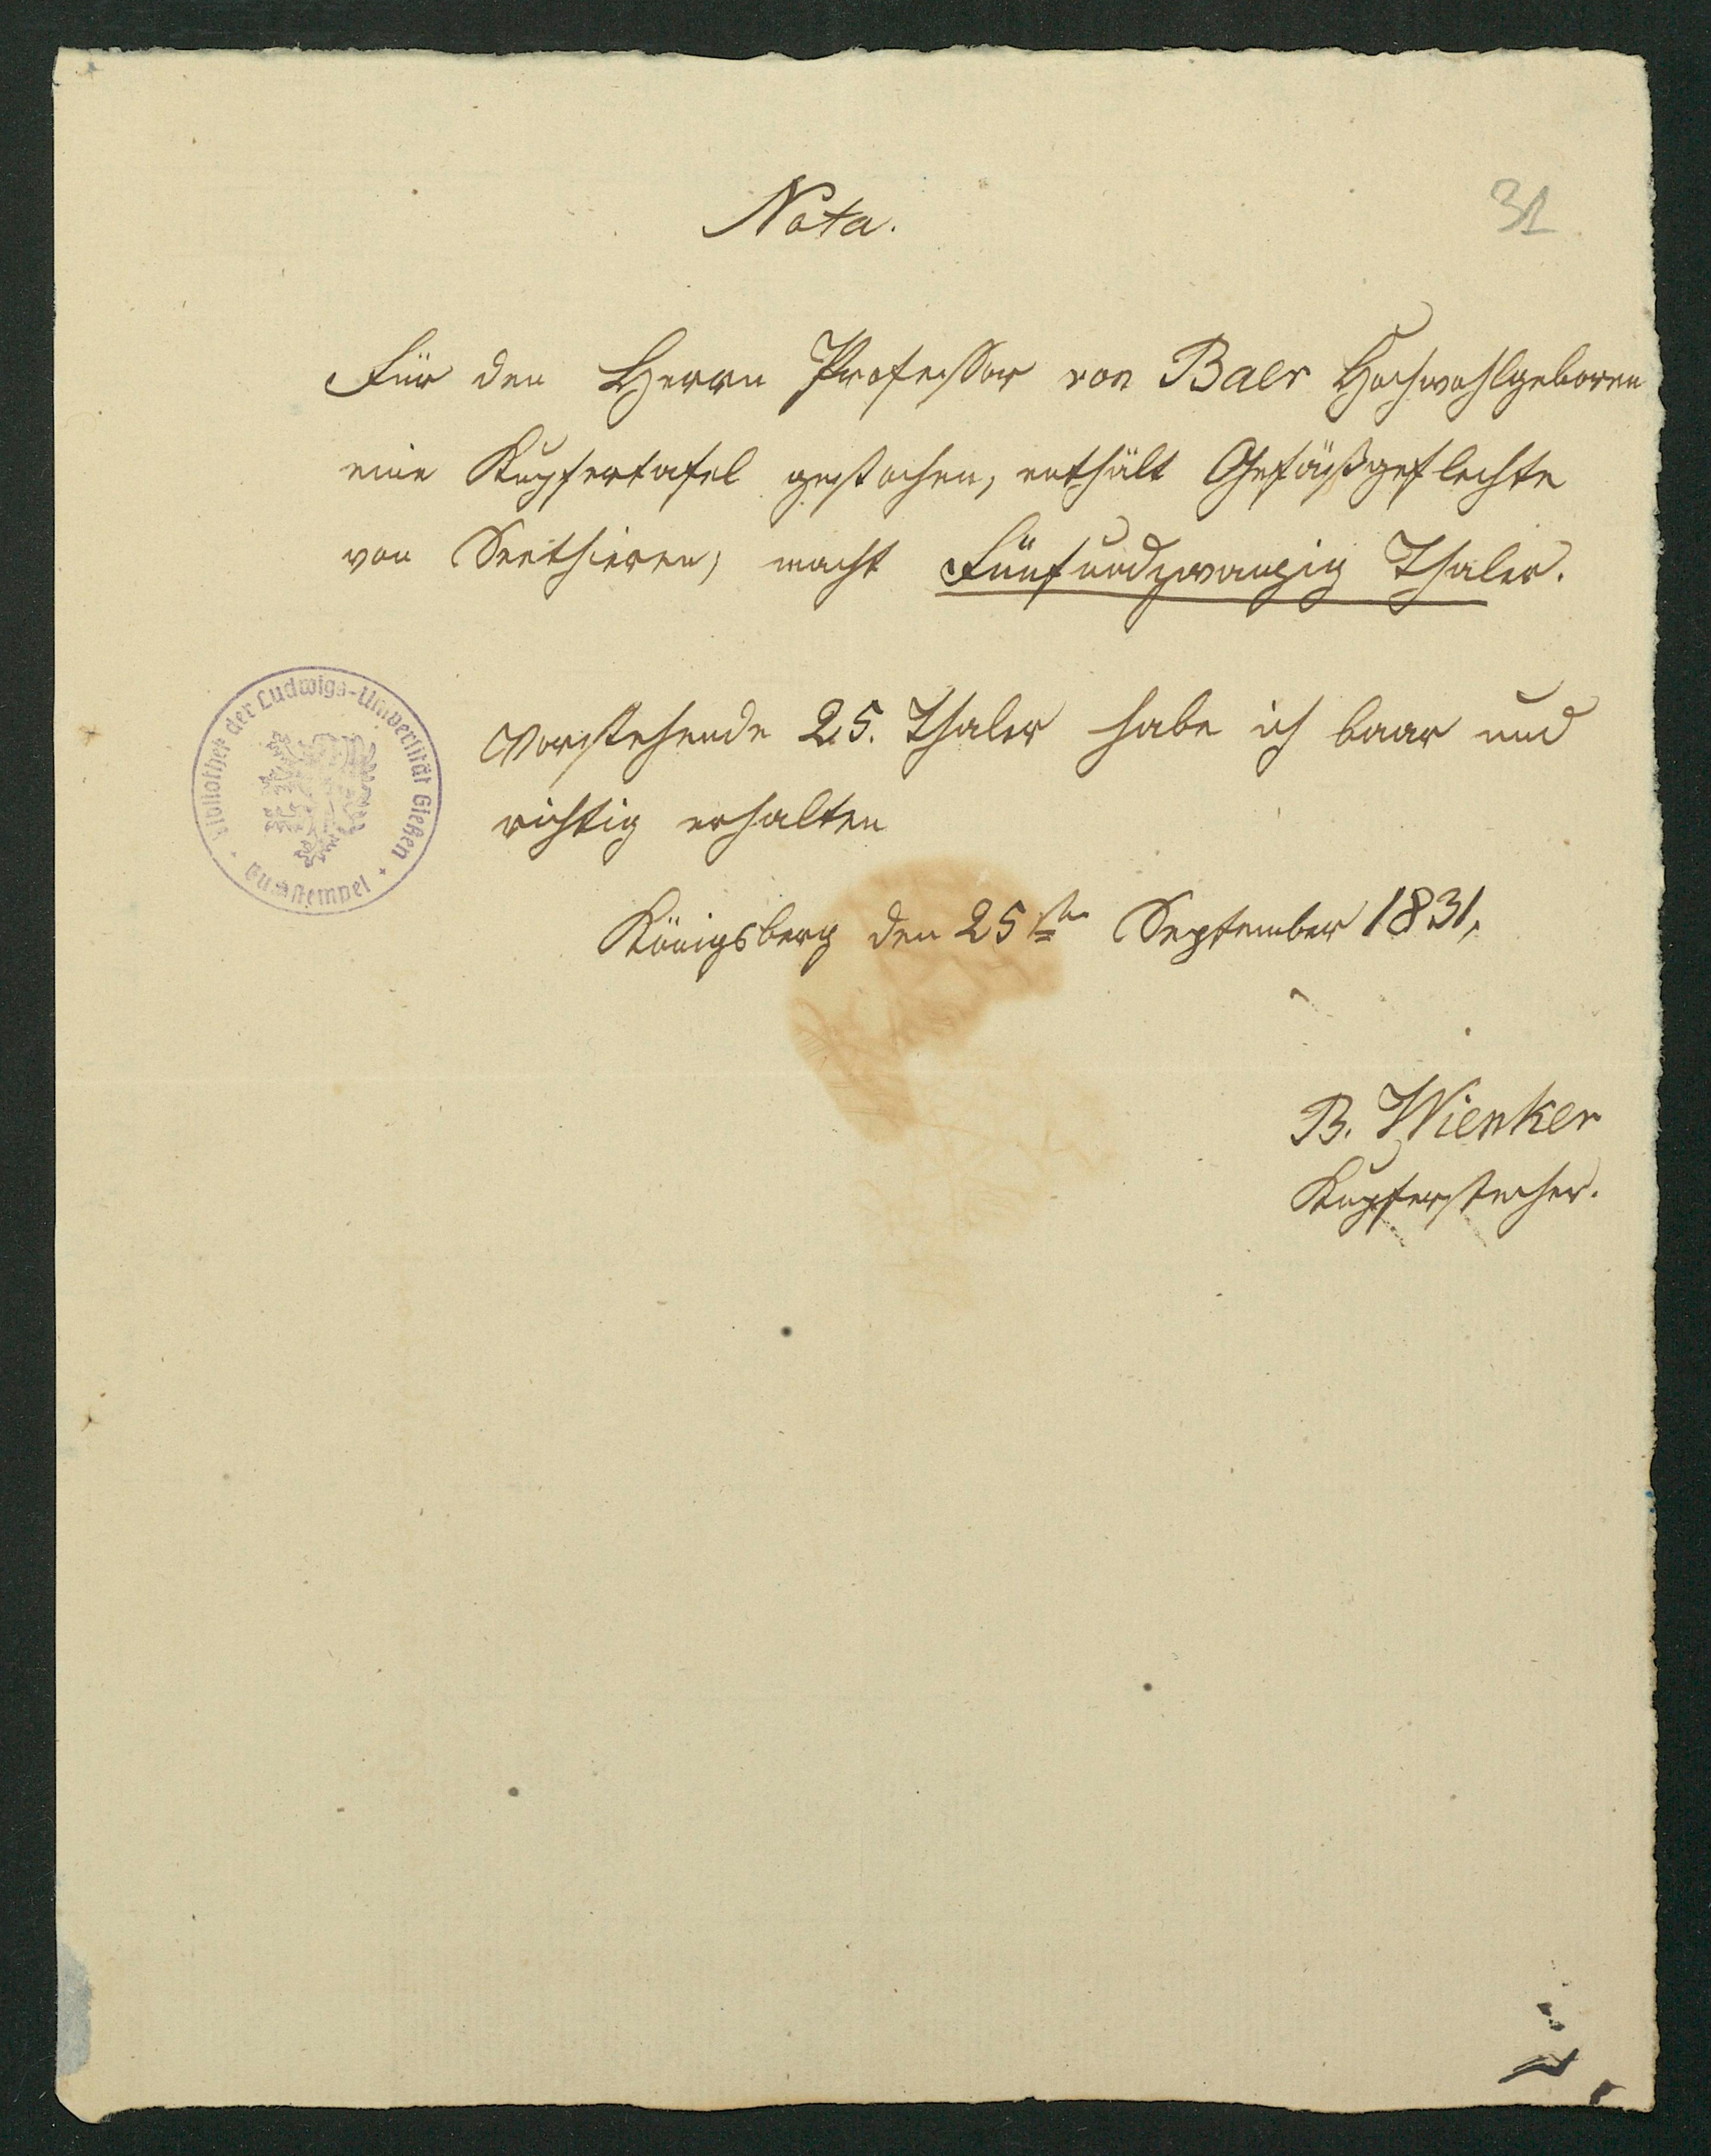 31
Nota.
Für den Herrn Professor von Baer Hochwohlgeboren
eine Kupfertafel gestochen, enthält Gefäßgeflechte
von Seethieren, macht Fünfundzwanzig Thaler.
Vorstehende 25. Thaler habe ich baar und
richtig erhalten
Königsberg den 25ten September 1831.
B. Wienker
Kupferstecher.
Bibliothek der Ludwigs-Universität Gießen